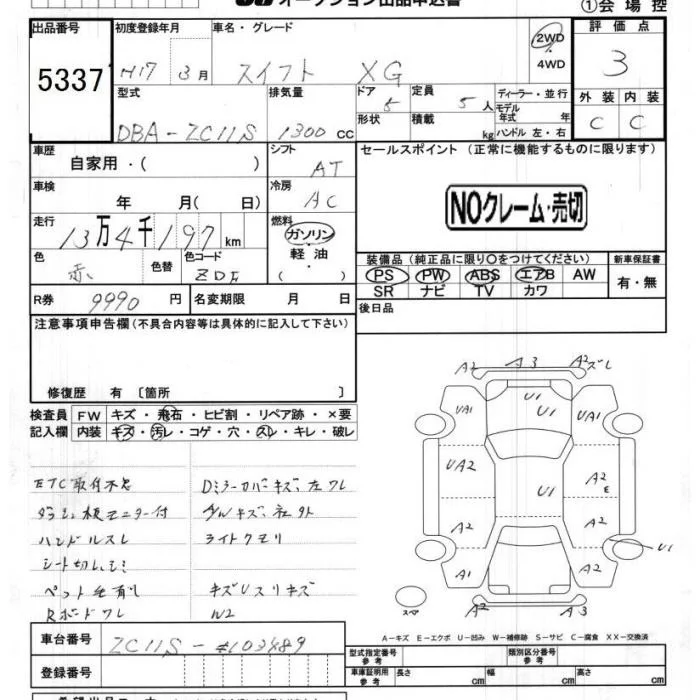 オークション出品申込書
①会場控
出品番号 初度登録年月 車名・グレード 評価点
5337 H17 3月 スイフト XG 2WD 4WD 3
型式 排気量 ドア 5 定員 5人 ディーラー・並行 外装 内装
DBA-ZC11S 1300 cc 形状 積載 kg モデル年式 年 ハンドル 左・右 C C
車歴 シフト セールスポイント (正常に機能するものに限ります)
自家用・( ) AT
車検 冷房
年 月( 日) AC NOクレーム・売切
走行 燃料
13万4千197km ガソリン・
色 色替 色コード 軽油・ 装備品 (純正品に限り○をつけてください) 新車保証書
赤 ZDF ( ) PS PW ABS エアB AW 有・無
SR ナビ TV カワ
R券 9990 円 名変期限 月 日 後日品
注意事項申告欄 (不具合内容等は具体的に記入して下さい)
修復歴 有 〔箇所 〕
検査員 FW キズ・飛石・ヒビ割・リペア跡・×要
記入欄 内装 キズ・汚レ・コゲ・穴・スレ・キレ・破レ
ETC取付不良 DミラーカバーキズV左ワレ
モニター付
ハンドルスレ ライトクモリ
シート切レ、シミ
ペット毛有り
Rボードワレ W2
A2 A3 A2ズレ
UA1 U1 U1 UA1
UA2 U1 A2 E
A2 A2
A1 A2 U1
スペア A2 A3
A-キズ E-エクボ U-凹み W-補修跡 S-サビ C-腐食 XX-交換済
車台番号 ZC11S-#103489
型式指定番号 参考 類別区分番号 参考
登録番号 車庫証明用 参考 長さ cm 幅 cm 高さ cm